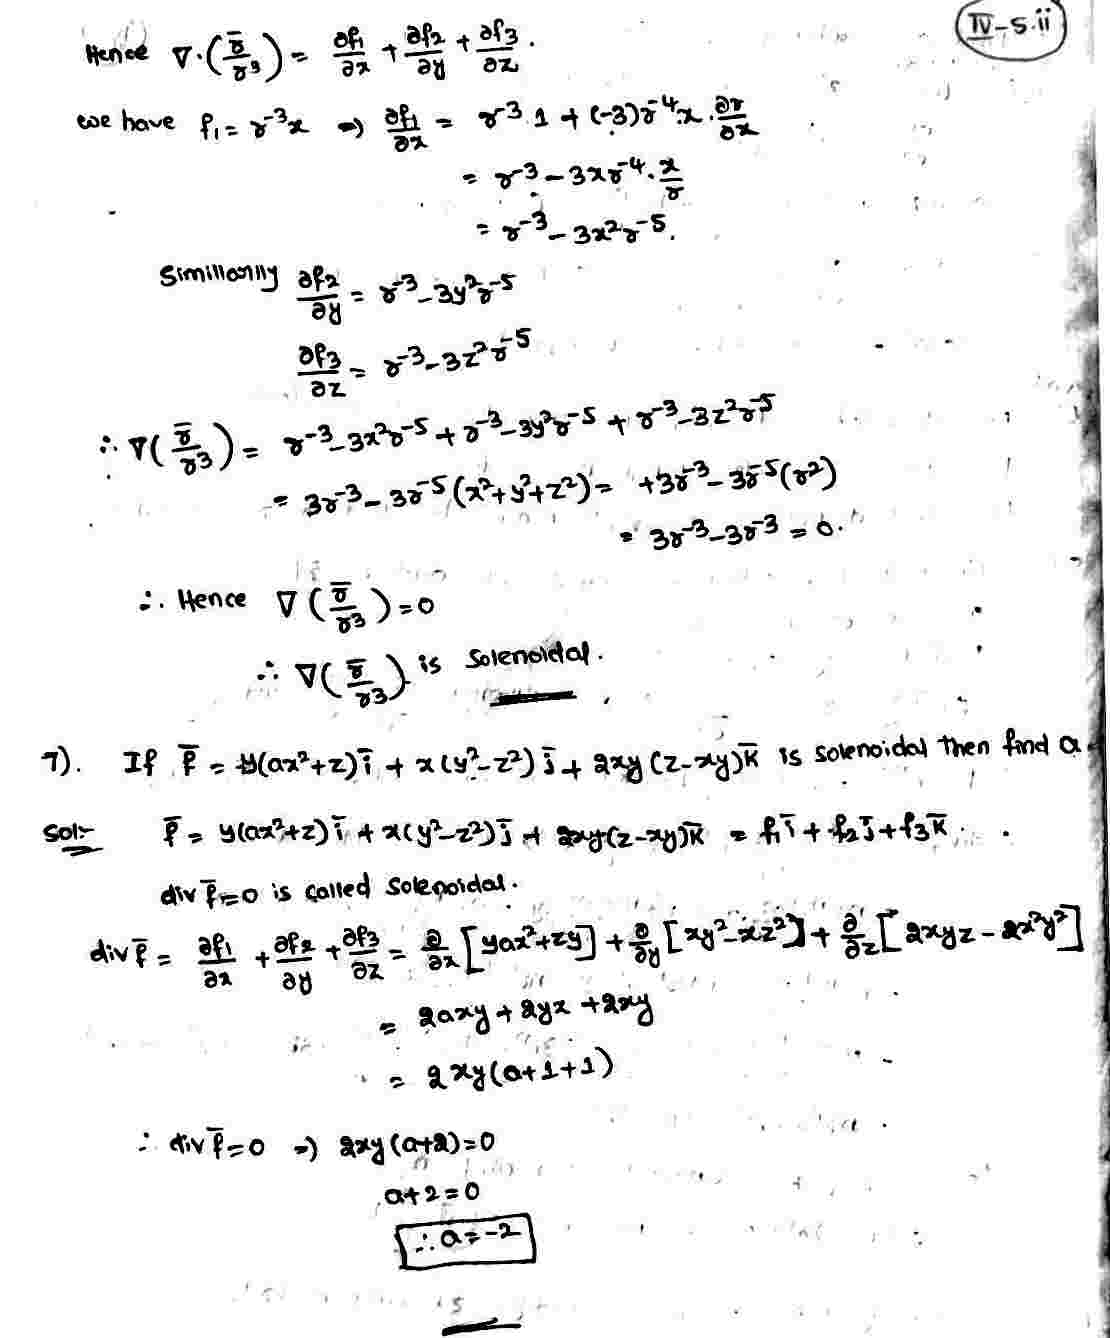 IV-5.ii
Hence ∇·(r̄/r³) = ∂f₁/∂x + ∂f₂/∂y + ∂f₃/∂z.
we have f₁ = r⁻³x ⇒ ∂f₁/∂x = r⁻³.1 + (-3)r⁻⁴.x.∂r/∂x
= r⁻³ - 3xr⁻⁴.x/r
= r⁻³ - 3x²r⁻⁵.
Simillarily ∂f₂/∂y = r⁻³ - 3y²r⁻⁵
∂f₃/∂z = r⁻³ - 3z²r⁻⁵
∴ ∇(r̄/r³) = r⁻³ - 3x²r⁻⁵ + r⁻³ - 3y²r⁻⁵ + r⁻³ - 3z²r⁻⁵
= 3r⁻³ - 3r⁻⁵(x²+y²+z²) = +3r⁻³ - 3r⁻⁵(r²)
= 3r⁻³ - 3r⁻³ = 0.
∴ Hence ∇(r̄/r³) = 0
∴ ∇(r̄/r³) is solenoidal.
7). If f̄ = y(ax²+z)ī + x(y²-z²)j̄ + 2xy(z-xy)k̄ is solenoidal then find a
Sol:- f̄ = y(ax²+z)ī + x(y²-z²)j̄ + 2xy(z-xy)k̄ = f₁ī + f₂j̄ + f₃k̄.
div f̄ = 0 is called solenoidal.
div f̄ = ∂f₁/∂x + ∂f₂/∂y + ∂f₃/∂z = ∂/∂x[yax²+zy] + ∂/∂y[xy²-xz²] + ∂/∂z[2xyz - 2x²y²]
= 2axy + 2yx + 2xy
= 2xy(a+1+1)
∴ div f̄ = 0 ⇒ 2xy(a+2) = 0
a+2 = 0
∴ a = -2